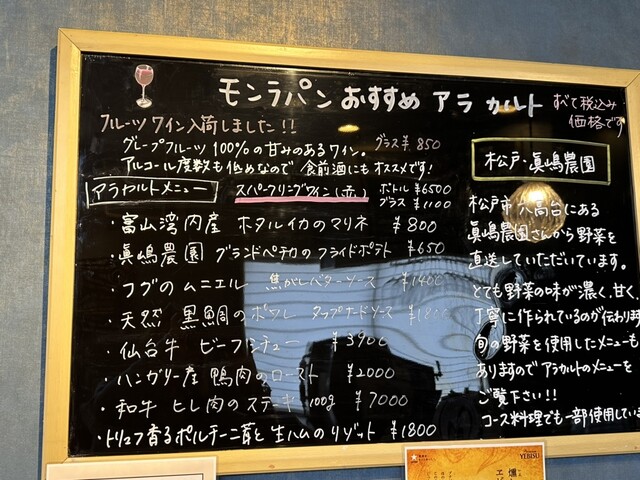 モンラパン おすすめ アラ カルト
すべて税込み
価格です
フルーツ ワイン入荷しました!!
グレープフルーツ 100%の甘みのあるワイン。 グラス ¥850
アルコール度数も低めなので 食前酒にも オススメです!
アラカルトメニュー
スパークリングワイン(赤) ボトル ¥6500
グラス ¥1100
・富山湾内産 ホタルイカのマリネ ¥800
・眞嶋農園 グランドペチカのフライドポテト ¥650
・フグのムニエル 焦がしバターソース ¥1400
・天然 黒鯛のポワレ タップナードソース
・仙台牛 ビーフシチュー ¥3900
・ハンガリー産 鴨肉のロースト ¥2000
・和牛 ヒレ肉のステーキ 100g ¥7000
・トリュフ香るポルチーニ茸と生ハムのリゾット ¥1800
松戸・眞嶋農園
松戸市 八高台にある
眞嶋農園さんから野菜を
直送していただいています。
とても野菜の味が濃く、甘く、
丁寧に作られているのが伝わります
旬の野菜を使用したメニューも
ありますので アラカルトのメニューを
ご覧下さい!!
コース料理でも一部使用してい
YEBISU